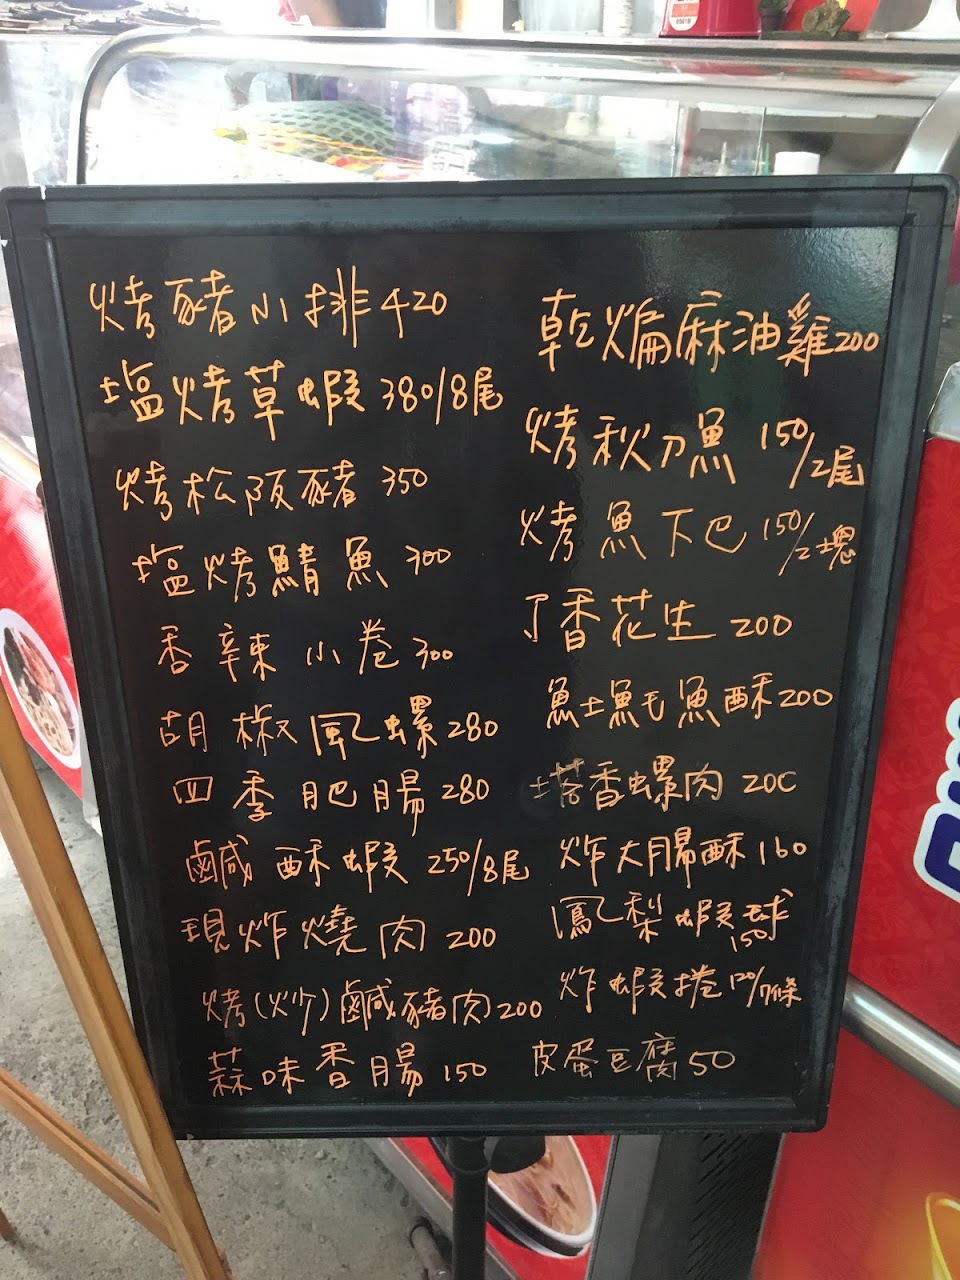 烤豬小排420
塩烤草蝦380/8尾
烤松阪豬350
塩烤鯖魚300
香辣小卷300
胡椒風螺280
四季肥腸280
鹹酥蝦250/8尾
現炸燒肉200
烤(炒)鹹豬肉200
蒜味香腸150
乾煸麻油雞200
烤秋刀魚150/2尾
烤魚下巴150/2塊
丁香花生200
魚土魠魚酥200
塔香螺肉200
炸大腸酥160
鳳梨蝦球150
炸蝦捲120/7條
皮蛋豆腐50